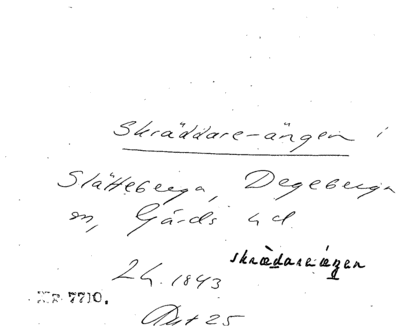 Skräddare-ängen i
Slätteberga, Degeberga
sn, Gärds hd
skrädareängen
Lh. 1843
7710.
Akt 25